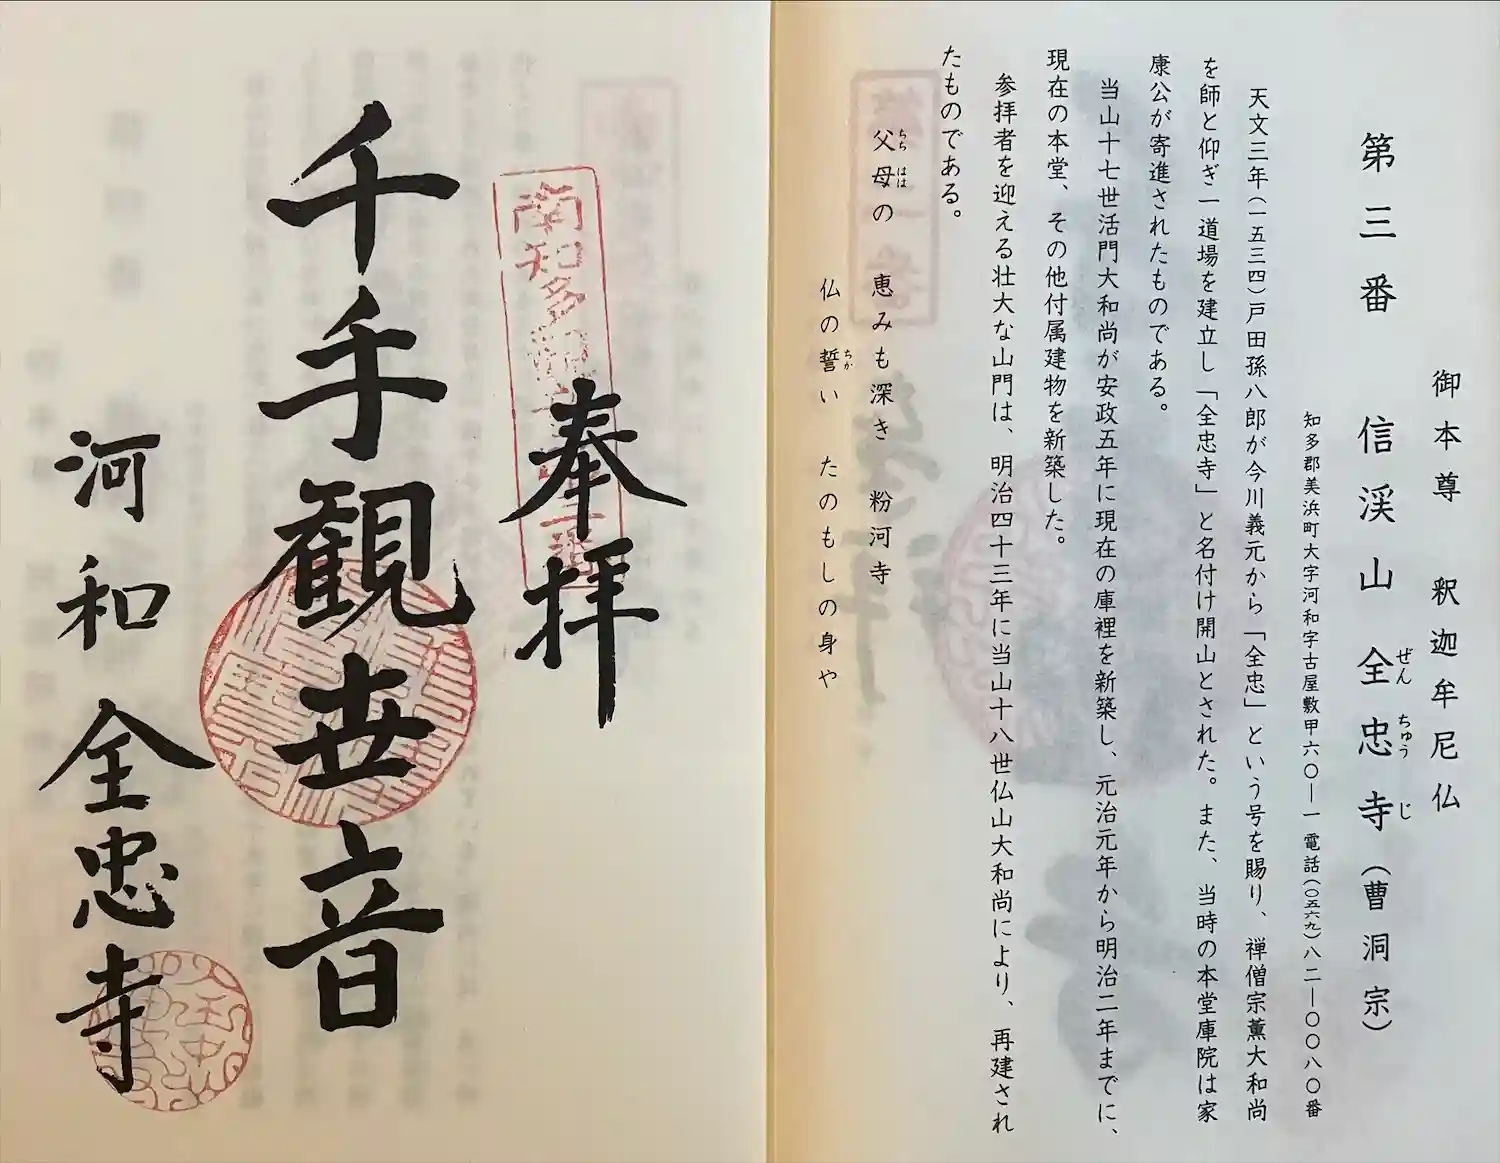 御本尊 釈迦牟尼仏
第三番 信渓山 全忠寺(曹洞宗)
ぜん ちゅう じ
知多郡美浜町大字河和字古屋敷甲六〇―一 電話(〇五六九)八二―〇〇八〇番
天文三年(一五三四)戸田孫八郎が今川義元から「全忠」という号を賜り、禅僧宗薫大和尚
を師と仰ぎ一道場を建立し「全忠寺」と名付け開山とされた。また、当時の本堂庫院は家
康公が寄進されたものである。
当山十七世活門大和尚が安政五年に現在の庫裡を新築し、元治元年から明治二年までに、
現在の本堂、その他付属建物を新築した。
参拝者を迎える壮大な山門は、明治四十三年に当山十八世仏山大和尚により、再建され
たものである。
父母の 恵みも深き 粉河寺
ちち はは
仏の誓い たのもしの身や
ちか
南知多
三番
奉拝
千手観世音
河和 全忠寺